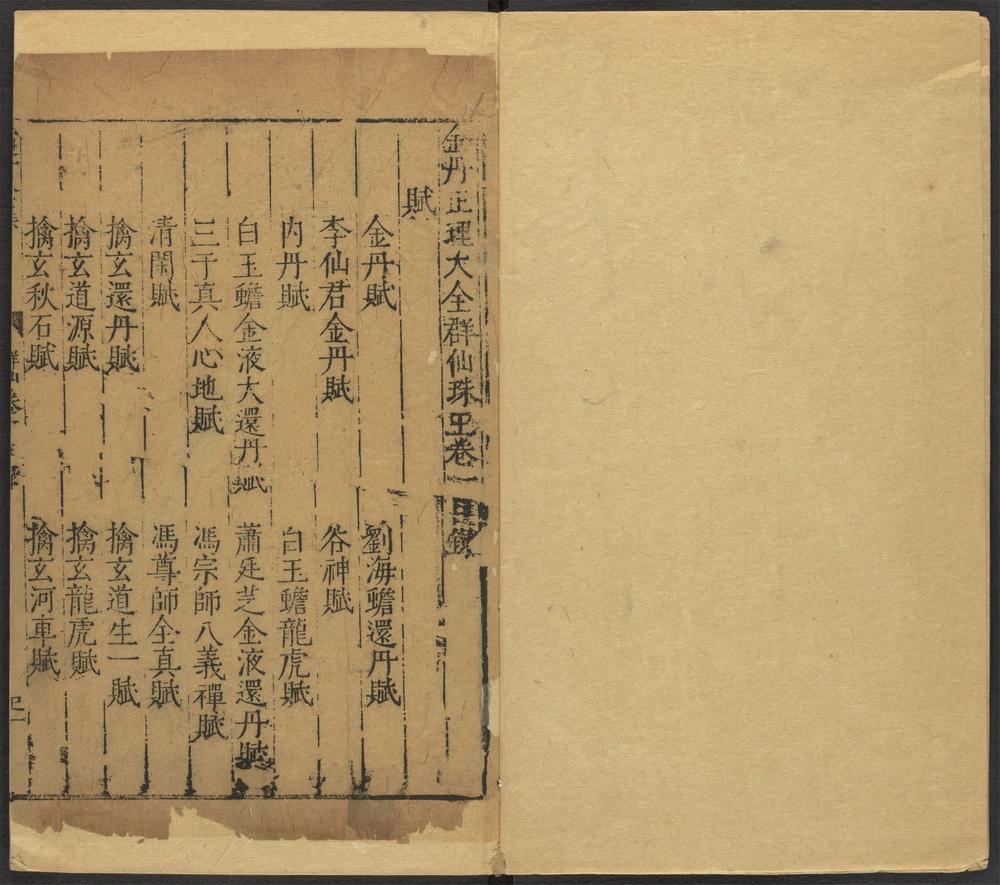 金丹正理大全群仙珠玉卷一目錄
賦
金丹賦 劉海蟾還丹賦
李仙君金丹賦 谷神賦
内丹賦 白玉蟾龍虎賦
白玉蟾金液大還丹賦 蕭廷芝金液還丹賦
三于真人心地賦 馮宗師八義禪賦
清閑賦 馮尊師全真賦
擒玄還丹賦 擒玄道生一賦
擒玄道源賦 擒玄龍虎賦
擒玄秋石賦 擒玄河車賦
群仙卷一